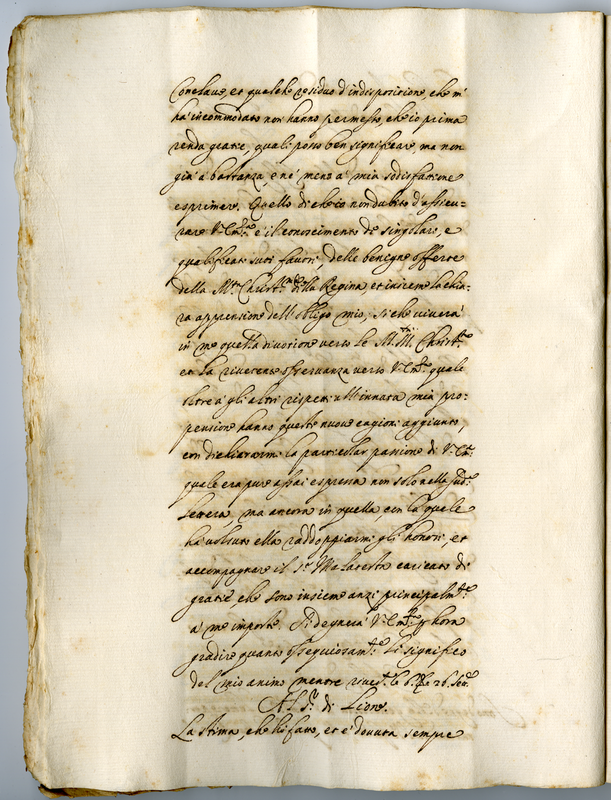 Conclave, et qualche residuo d'indispositione, che m'
ha incommodato non hanno permesso, che io prima
renda gratie, quali posso ben significare, ma non
già a bastanza, e né meno a' mia sodisfatione
esprimere. Quello di che io non dubito d'assicu=
rare V. Em.za è il conoscimento de singolari, e
qualificati suoi favori, delle benigne offerte
della M.tà Christ.ma della Regina, et insieme la chia=
ra apprensione dell'obligo mio, si che viverà
in me questa divotione verso le M.M. Christ.me
et la riverente osservanza verso V. Em.za quali
oltre a' gli altri rispetti all'innata mia pro=
pensione hanno queste nuove cagioni aggiunto,
con dichiararmi la particolar passione di V. Em.za
quale era pure assai espressa non solo nella sud.a
lettera, ma ancora in quella, con la quale
ha voluto ella raddoppiarmi gli honori, et
accompagnare il S.r Malatesta caricato di
gratie, che sono insieme anzi principalm.te
a' me imposte. Si degnerà V. Em.za p hora
gradire quanto ossequiosam.te li significo
del mio animo mentre river.te le b. 26
Al S.r di Lione.
La stima, che hò fatto, et è dovuta sempre